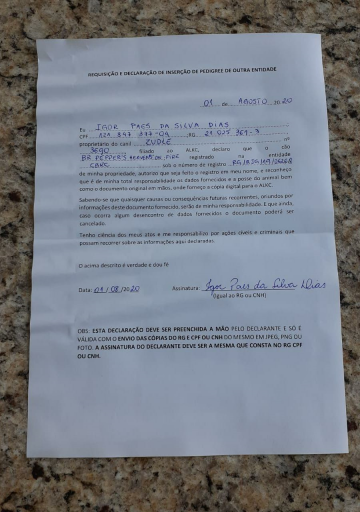 REQUISIÇÃO E DECLARAÇÃO DE INSERÇÃO DE PEDIGREE DE OUTRA ENTIDADE
01 de AGOSTO 2020
Eu IGOR PAES DA SILVA DIAS
CPF RG
proprietário do canil nº
filiado ao ALKC, declaro que o cão
BR PEPPER'S registrado na entidade
CBKC sob o número de registro
de minha propriedade, autorizo que seja feito o registro em meu nome, e reconheço
que é de minha total responsabilidade os dados fornecidos e a posse do animal bem
como o documento original em mãos, onde forneço a cópia digital para o ALKC.
Sabendo-se que quaisquer causas ou consequências futuras recorrentes, oriundos por
informações deste documento fornecido, serão de minha responsabilidade. E que ainda,
caso ocorra algum desencontro de dados fornecidos o documento poderá ser
cancelado.
Tenho ciência dos meus atos e me responsabilizo por ações cíveis e criminais que
possam recorrer sobre as informações aqui declaradas.
O acima descrito é verdade e dou fé
Data: 01/08/2020 Assinatura: Igor Paes da Silva Dias
(igual ao RG ou CNH)
OBS: ESTA DECLARAÇÃO DEVE SER PREENCHIDA A MÃO PELO DECLARANTE E SÓ É
VÁLIDA COM O ENVIO DAS CÓPIAS DO RG E CPF OU CNH DO MESMO EM JPEG, PNG OU
FOTO. A ASSINATURA DO DECLARANTE DEVE SER A MESMA QUE CONSTA NO RG CPF
OU CNH.